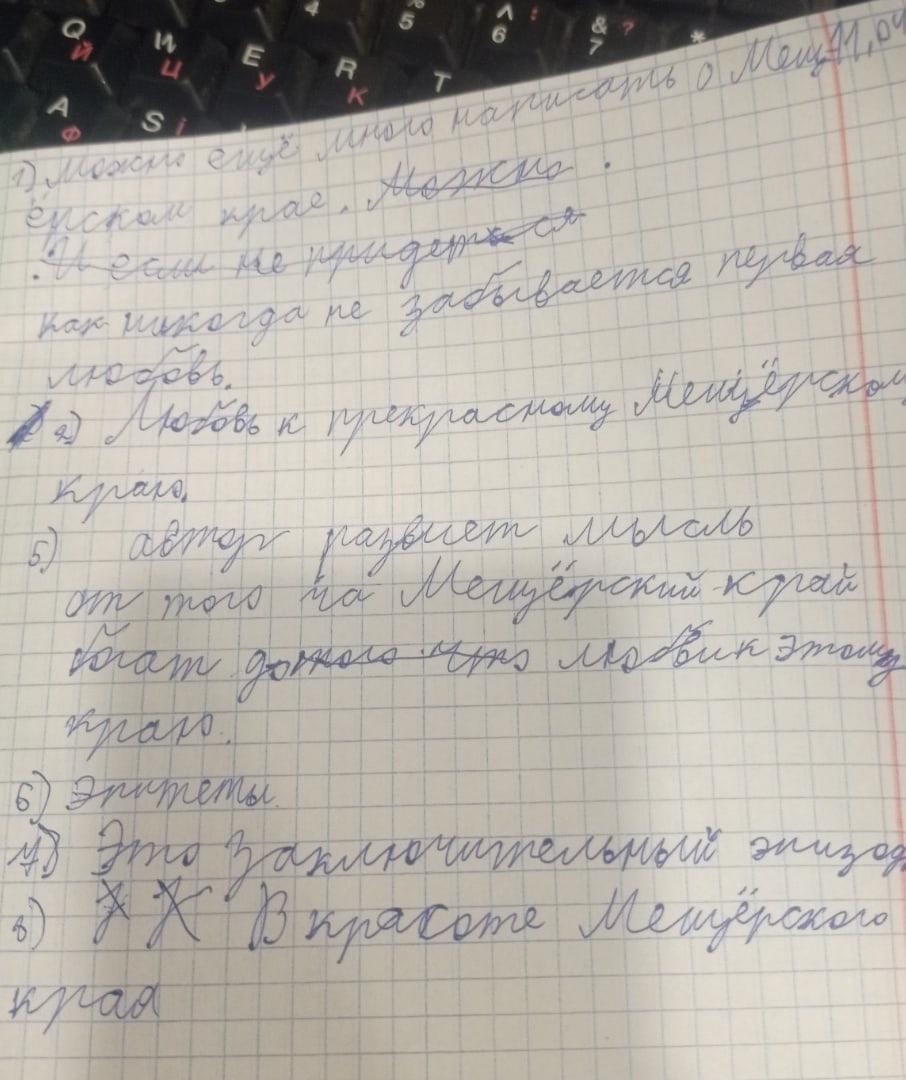 Q Й И Ц E У R К T 4 5 ^ : 6 & ? 7 *
A Ф S і
11,04
1) Можно ещё много написать о Мещ-
ёрском крае. Можно .
.И если не придется
как никогда не забывается первая
любовь.
2) Любовь к прекрасному Мещёрскому
краю.
5) автор развиет мысль
от того ча Мещёрский край
богат дотого что любви к этому
краю.
6) Эпитеты
7) Это заключительный эпизод
8) В красоте Мещёрского
края